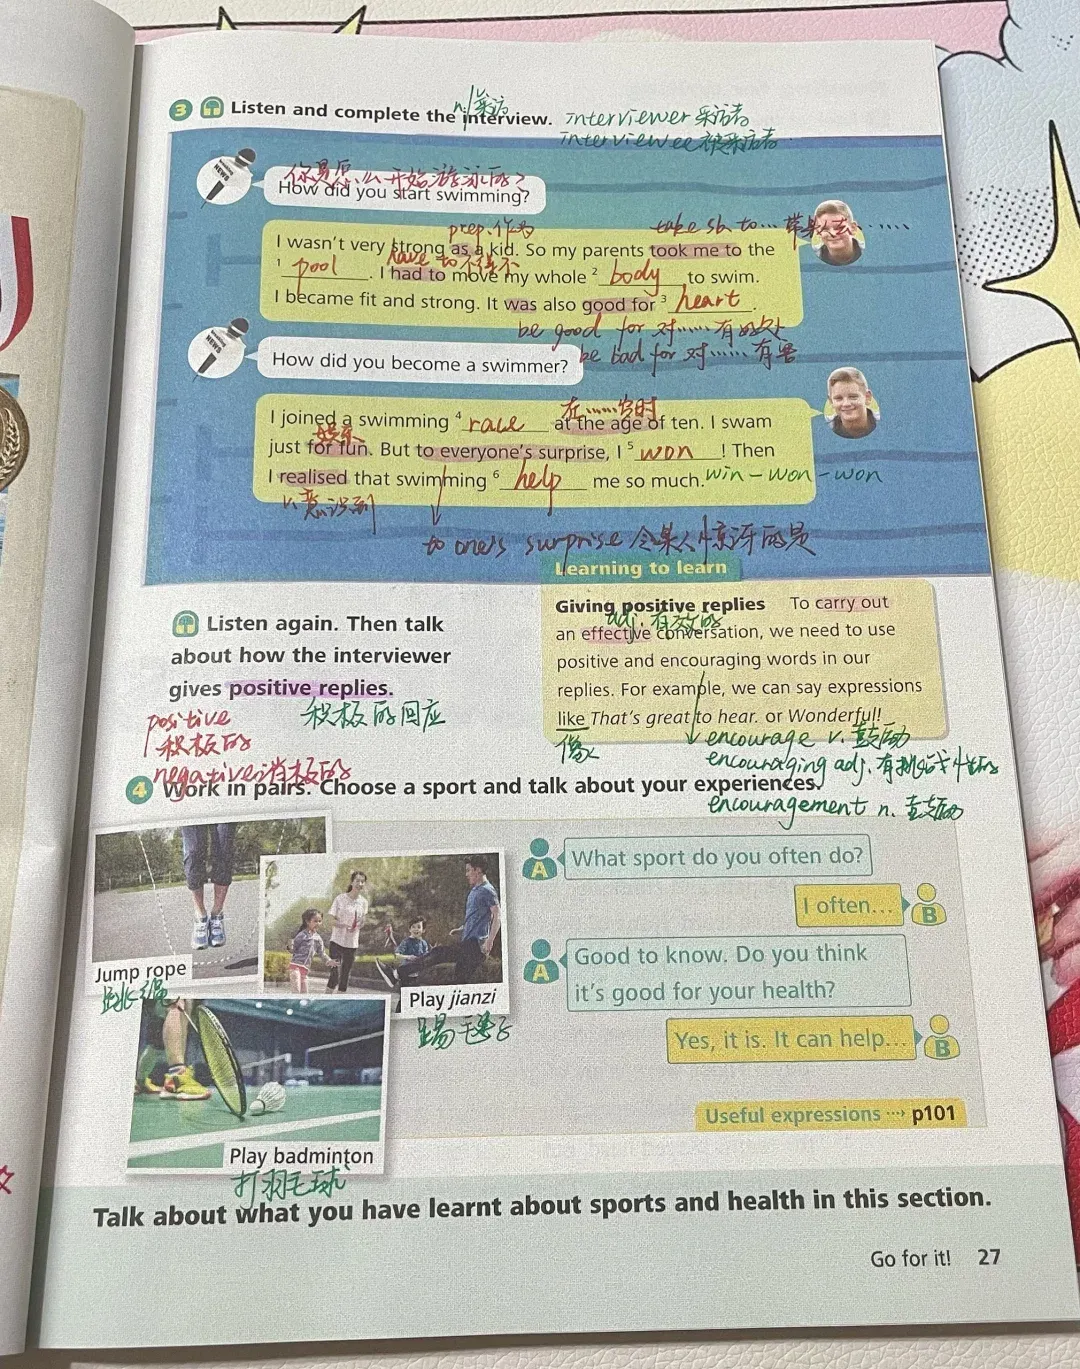 3 Listen and complete the interview.
n. 采访
interviewer 采访者
interviewee 被采访者
NEWS
你是怎么开始游泳的?
How did you start swimming?
prep. 作为
take sb. to... 带某人去......
I wasn't very strong as a kid. So my parents took me to the
have to 不得不
1 pool. I had to move my whole 2 body to swim.
I became fit and strong. It was also good for 3 heart.
be good for 对......有好处
be bad for 对......有害
NEWS
How did you become a swimmer?
在......岁时
I joined a swimming 4 race at the age of ten. I swam
just for fun. But to everyone's surprise, I 5 won! Then
I realised that swimming 6 help me so much.
win-won-won
v. 意识到
to one's surprise 令某人惊讶的是
Learning to learn
Giving positive replies To carry out
adj. 有效的
an effective conversation, we need to use
positive and encouraging words in our
replies. For example, we can say expressions
like That's great to hear. or Wonderful!
像
encourage v. 鼓励
encouraging adj.
encouragement n. 鼓励
Listen again. Then talk
about how the interviewer
gives positive replies.
积极的回应
positive
积极的
negative 消极的
4 Work in pairs. Choose a sport and talk about your experiences.
Jump rope
跳绳
Play jianzi
踢毽子
Play badminton
打羽毛球
A What sport do you often do?
I often... B
A Good to know. Do you think
it's good for your health?
Yes, it is. It can help... B
Useful expressions p101
Talk about what you have learnt about sports and health in this section.
Go for it! 27